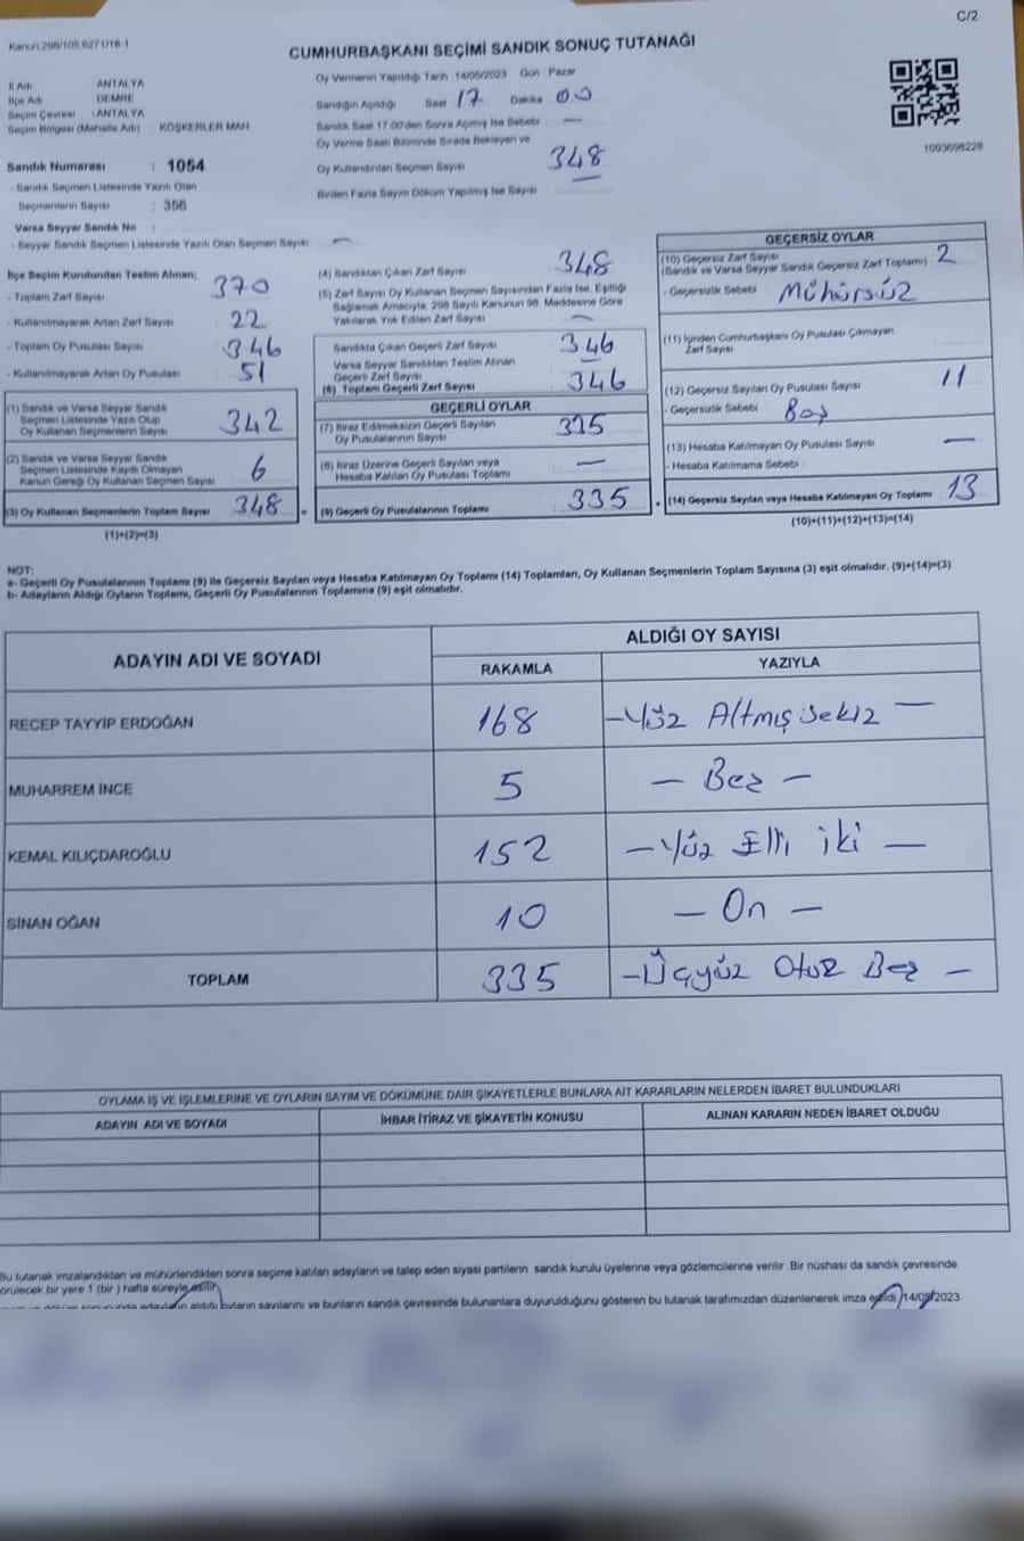 C/2
CUMHURBAŞKANI SEÇİMİ SANDIK SONUÇ TUTANAĞI
Oy Vermenin Yapıldığı Tarih 14/05/2023 Gün Pazar
İl Adı : ANTALYA
İlçe Adı : DEMRE
Seçim Çevresi : ANTALYA
Seçim Bölgesi (Mahalle Adı) KÖŞKERLER MAH
Sandığın Açıldığı Saat 17 Dakika 00
Sandık Saat 17:00'den Sonra Açılmış İse Sebebi —
Oy Verme Saati Bitiminde Sırada Bekleyen ve
Oy Kullandırılan Seçmen Sayısı 348
Birden Fazla Sayım Döküm Yapılmış İse Sayısı
1003698228
Sandık Numarası : 1054
- Sandık Seçmen Listesinde Yazılı Olan
Seçmenlerin Sayısı : 356
Varsa Seyyar Sandık No :
- Seyyar Sandık Seçmen Listesinde Yazılı Olan Seçmen Sayısı —
İlçe Seçim Kurulundan Teslim Alınan;
- Toplam Zarf Sayısı 370
- Kullanılmayarak Artan Zarf Sayısı 22
- Toplam Oy Pusulası Sayısı 346
- Kullanılmayarak Artan Oy Pusulası 51
(1) Sandık ve Varsa Seyyar Sandık
Seçmen Listesinde Yazılı Olup
Oy Kullanan Seçmenlerin Sayısı 342
(2) Sandık ve Varsa Seyyar Sandık
Seçmen Listesinde Kayıtlı Olmayan
Kanun Gereği Oy Kullanan Seçmen Sayısı 6
(3) Oy Kullanan Seçmenlerin Toplam Sayısı 348
(1)+(2)=(3)
(4) Sandıktan Çıkan Zarf Sayısı 348
(5) Zarf Sayısı Oy Kullanan Seçmen Sayısından Fazla İse, Eşitliği
Sağlamak Amacıyla, 298 Sayılı Kanunun 98. Maddesine Göre
Yakılarak Yok Edilen Zarf Sayısı —
Sandıkta Çıkan Geçerli Zarf Sayısı 346
Varsa Seyyar Sandıktan Teslim Alınan
Geçerli Zarf Sayısı
(6) Toplam Geçerli Zarf Sayısı 346
GEÇERLİ OYLAR
(7) İtiraz Edilmeksizin Geçerli Sayılan
Oy Pusulalarının Sayısı 335
(8) İtiraz Üzerine Geçerli Sayılan veya
Hesaba Katılan Oy Pusulası Toplamı —
(9) Geçerli Oy Pusulalarının Toplamı 335
GEÇERSİZ OYLAR
(10) Geçersiz Zarf Sayısı 2
(Sandık ve Varsa Seyyar Sandık Geçersiz Zarf Toplamı)
- Geçersizlik Sebebi Mühürsüz
(11) İçinden Cumhurbaşkanı Oy Pusulası Çıkmayan
Zarf Sayısı
(12) Geçersiz Sayılan Oy Pusulası Sayısı 11
- Geçersizlik Sebebi Boş
(13) Hesaba Katılmayan Oy Pusulası Sayısı —
- Hesaba Katılmama Sebebi
(14) Geçersiz Sayılan veya Hesaba Katılmayan Oy Toplamı 13
(10)+(11)+(12)+(13)=(14)
NOT:
a- Geçerli Oy Pusulalarının Toplamı (9) ile Geçersiz Sayılan veya Hesaba Katılmayan Oy Toplamı (14) Toplamları, Oy Kullanan Seçmenlerin Toplam Sayısına (3) eşit olmalıdır. (9)+(14)=(3)
b- Adayların Aldığı Oyların Toplamı, Geçerli Oy Pusulalarının Toplamına (9) eşit olmalıdır.
ADAYIN ADI VE SOYADI
ALDIĞI OY SAYISI
RAKAMLA YAZIYLA
RECEP TAYYİP ERDOĞAN 168 - Yüz Altmış Sekiz —
MUHARREM İNCE 5 — Beş —
KEMAL KILIÇDAROĞLU 152 — Yüz Elli iki —
SİNAN OĞAN 10 — On —
TOPLAM 335 - Üçyüz Otuz Beş —
OYLAMA İŞ VE İŞLEMLERİNE VE OYLARIN SAYIM VE DÖKÜMÜNE DAİR ŞİKAYETLERLE BUNLARA AİT KARARLARIN NELERDEN İBARET BULUNDUKLARI
ADAYIN ADI VE SOYADI İHBAR İTİRAZ VE ŞİKAYETİN KONUSU ALINAN KARARIN NEDEN İBARET OLDUĞU
Bu tutanak imzalandıktan ve mühürlendikten sonra seçime katılan adayların ve talep eden siyasi partilerin sandık kurulu üyelerine veya gözlemcilerine verilir. Bir nüshası da sandık çevresinde
görülecek bir yere 1 (bir) hafta süreyle asılır.
adayların aldığı oyların sayılarını ve bunların sandık çevresinde bulunanlara duyurulduğunu gösteren bu tutanak tarafımızdan düzenlenerek imza edildi 14/05/2023